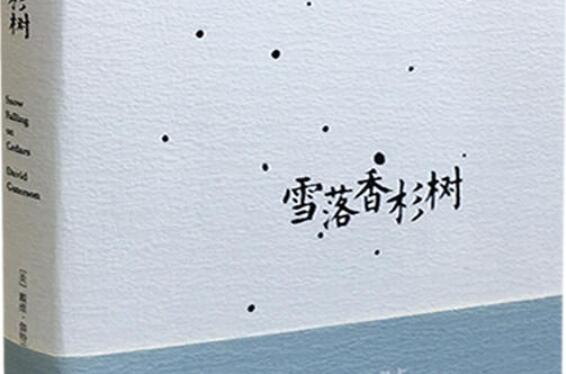 杉树
Snow
Falling
on
Cedars
David
Guterson
[美] 戴维·伽特
雪落香杉树